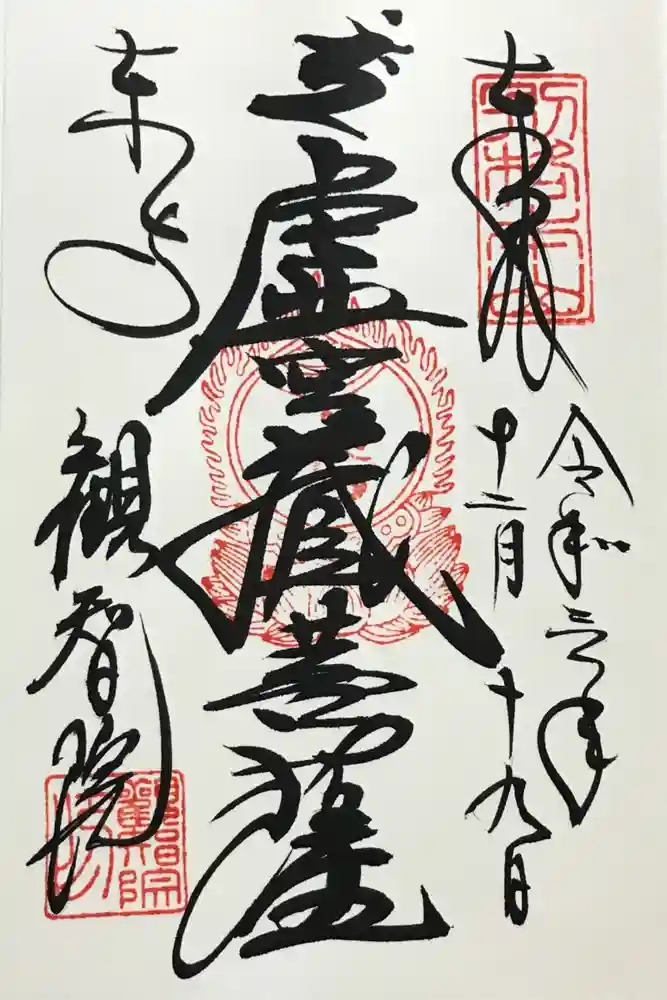 奉拝
令和三年
十二月十九日
五大虚空蔵菩薩
東寺
観智院